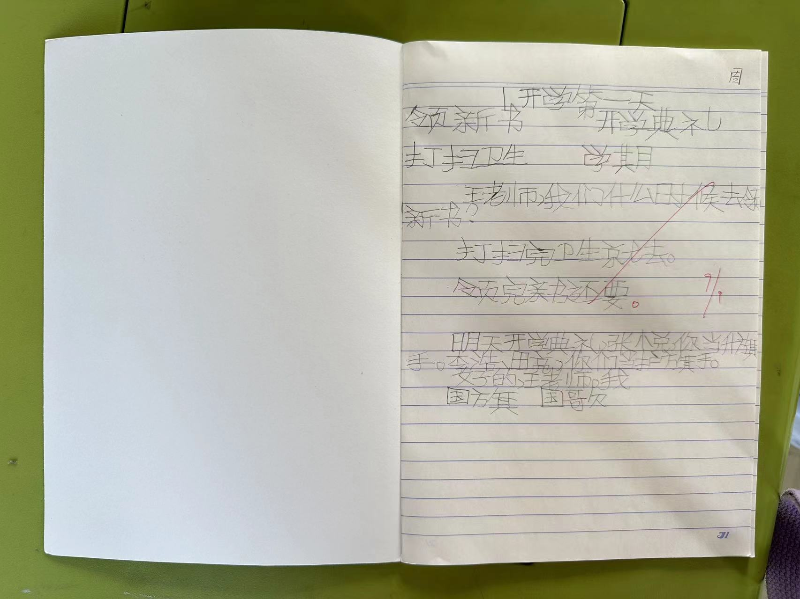 周
1 开学第一天
领新书 开学典礼
打扫卫生 学期
王老师,我们什么时候去领
新书?
打扫完卫生就去。
领完新书还要。
9/1
明天开学典礼,张小说你当升旗
手。李浩、田亮,你们当护旗手。
好的王老师。我
国旗 国歌
31